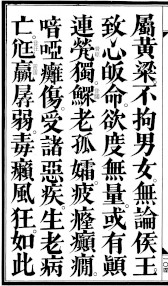 屬黃梁不拘男女無論侯王
致心皈命欲度無量或有顚
連煢獨鰥老孤孀疲癃癲癎
喑啞癱傷受諸惡疾生老病
亡尫羸孱弱毒癩風狂如此